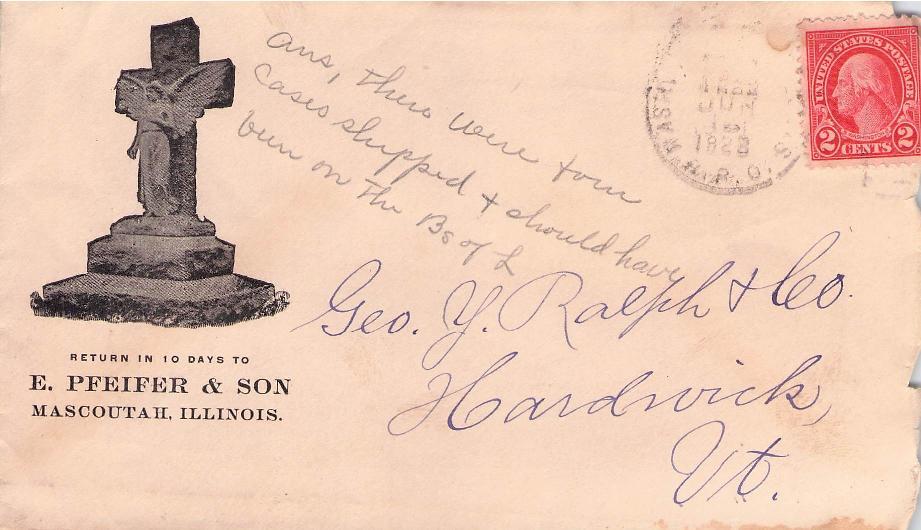 RETURN IN 10 DAYS TO
E. PFEIFER & SON
MASCOUTAH, ILLINOIS.
ans, there were four
cases shipped & should have
been on the Bs of L
Geo. Y. Ralph & Co.
Hardwick,
Vt.
WASH
JUN
192
R.P.O.
UNITED STATES POSTAGE
WASHINGTON
2 CENTS 2